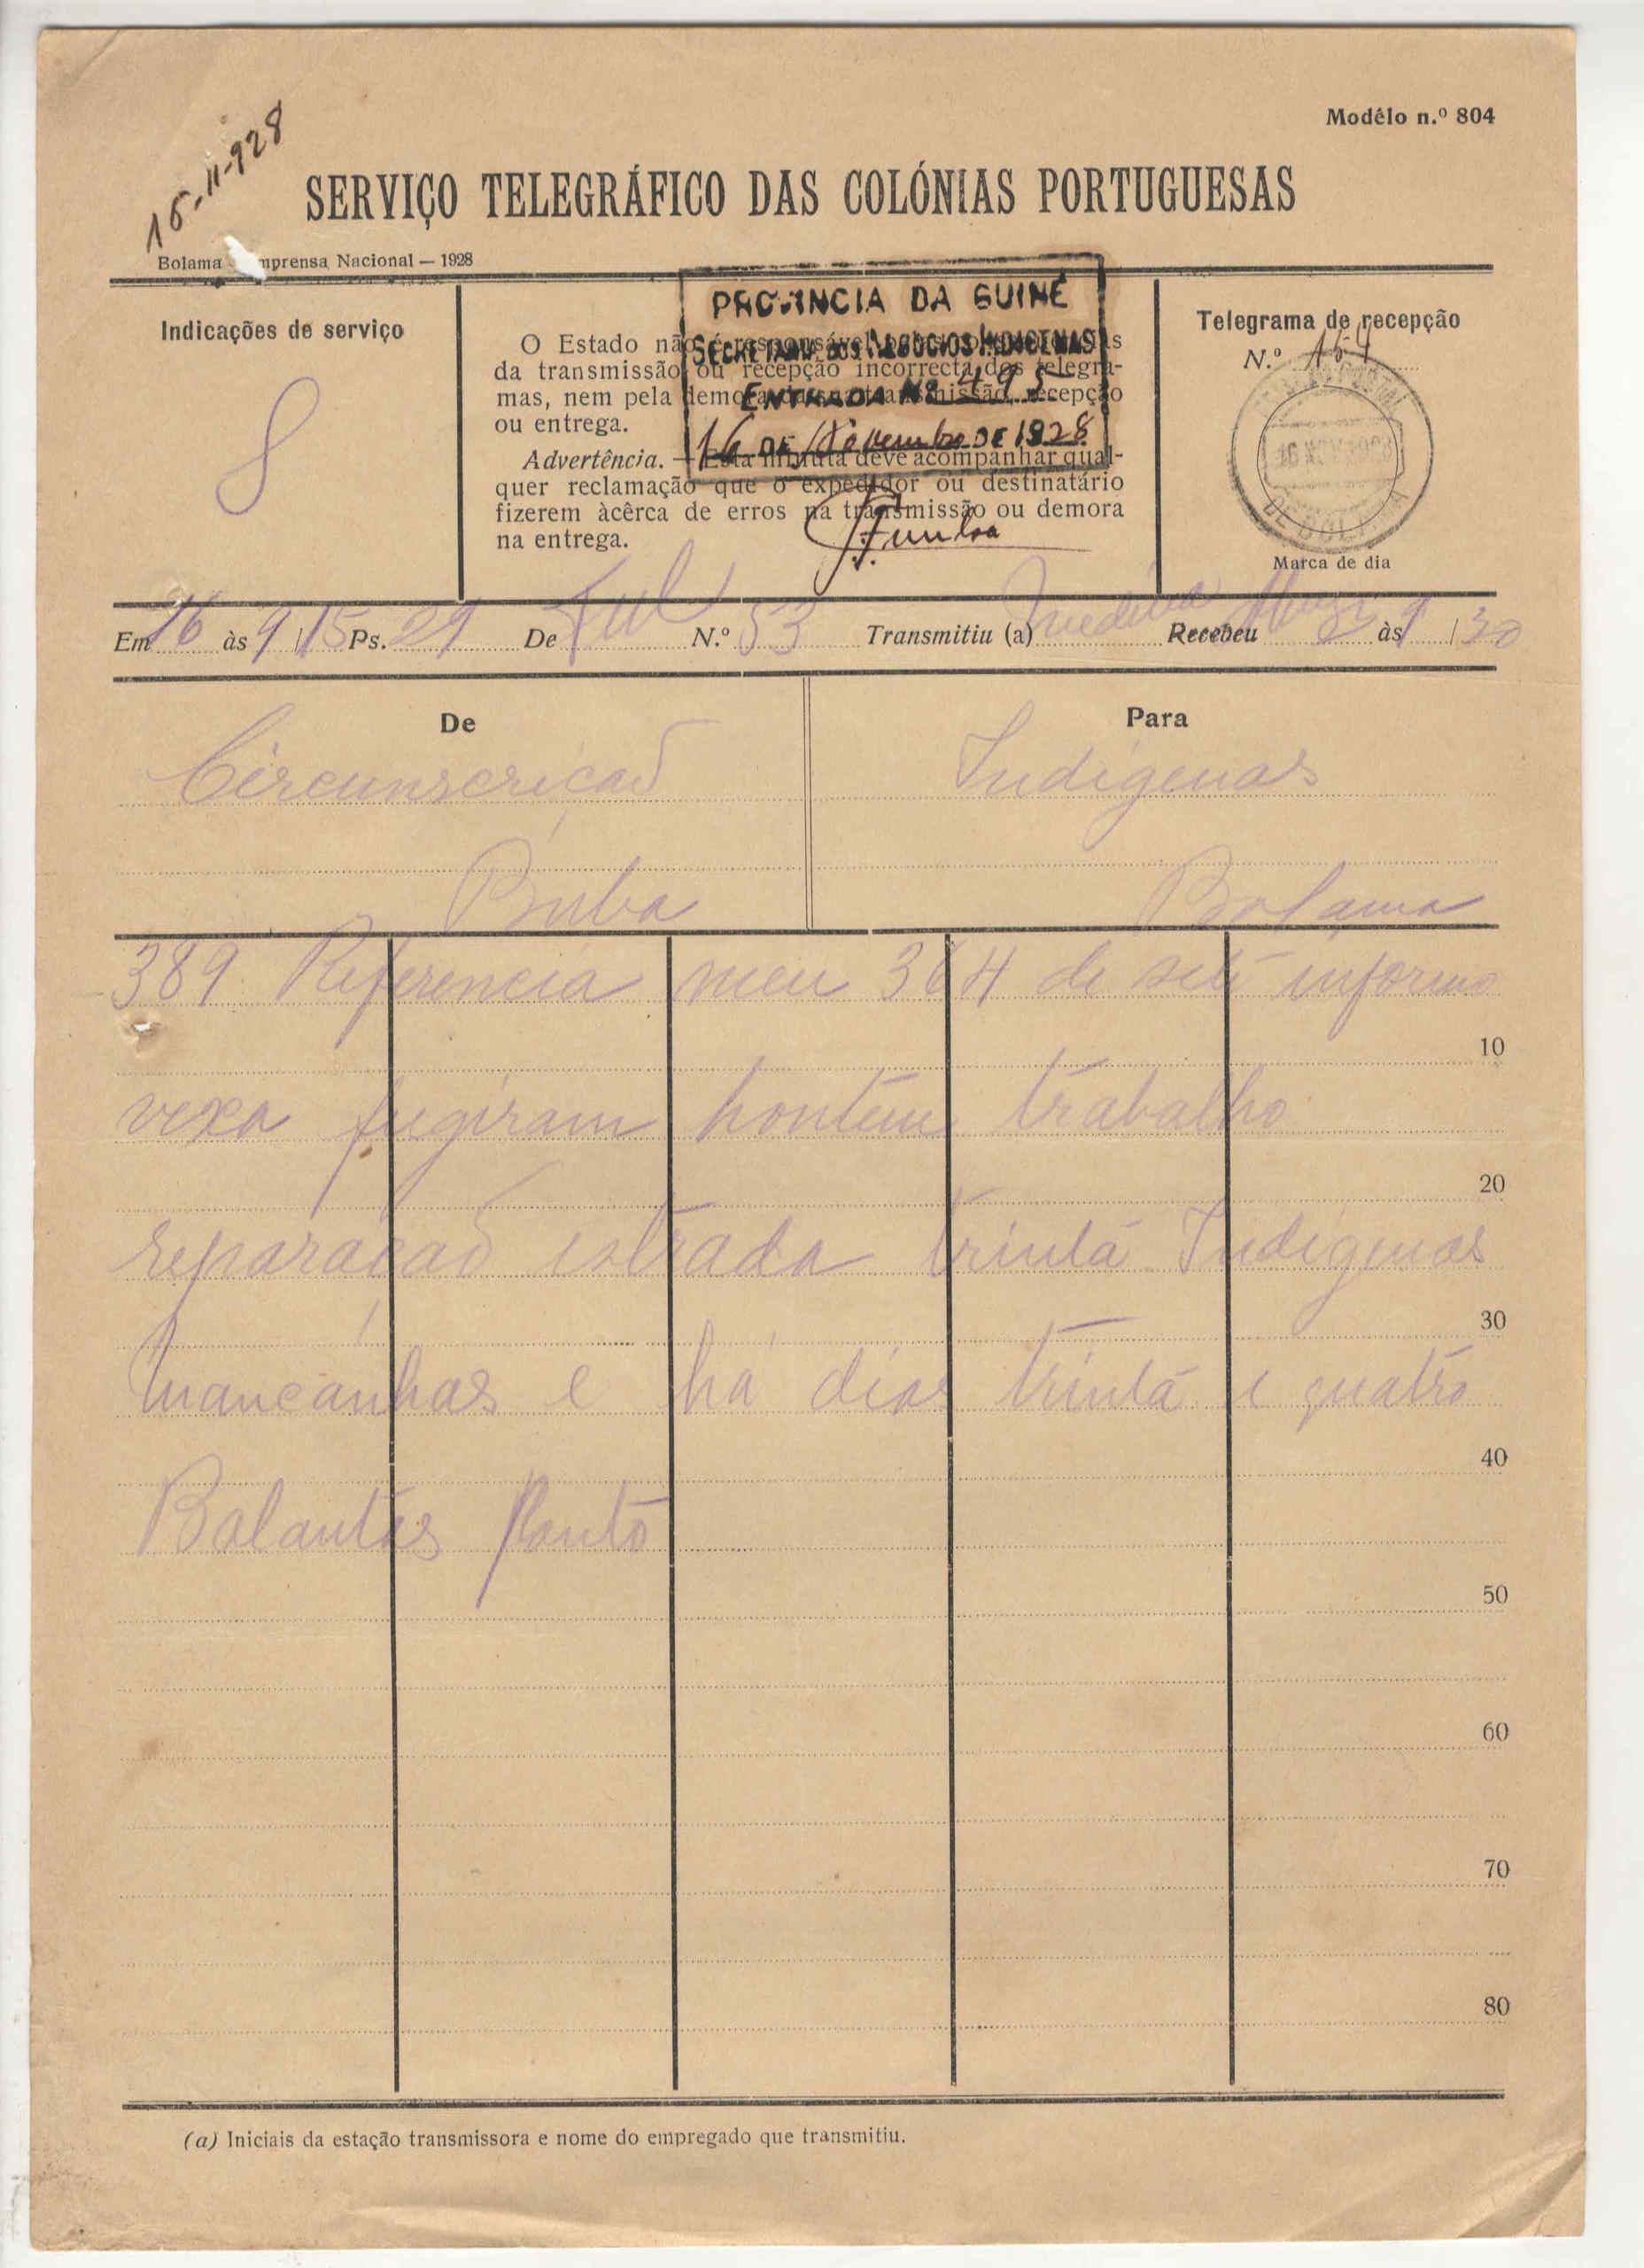 16-11-928
Modêlo n.º 804
SERVIÇO TELEGRÁFICO DAS COLÓNIAS PORTUGUESAS
Bolama mprensa Nacional — 1928
Indicações de serviço
8
O Estado não é responsável
da transmissão ou recepção incorrecta dos telegra-
mas, nem pela demora transmissão, recepção
ou entrega.
Advertência. — Esta minuta deve acompanhar qual-
quer reclamação que o expedidor ou destinatário
fizerem àcêrca de erros na transmissão ou demora
na entrega.
PROVINCIA DA GUINÉ
SECRETARIA DOS NEGOCIOS INDIGENAS
ENTRADA Nº 495
16 DE Novembro DE 1928
Telegrama de recepção
N.º 154
16 NOV 1928
Marca de dia
Em 16 às 9/15 Ps. 29 De Ful N.º 53 Transmitiu (a) Medina Recebeu às 9/30
De
Circunscrição
Buba
Para
Indigenas
Bolama
389 Referencia meu 364 de sete informo
10
vexa fugiram hontem trabalho
20
reparação estrada trinta Indigenas
30
Mancanhas e há dias trinta e quatro
40
Balantas Ponto
50
60
70
80
(a) Iniciais da estação transmissora e nome do empregado que transmitiu.